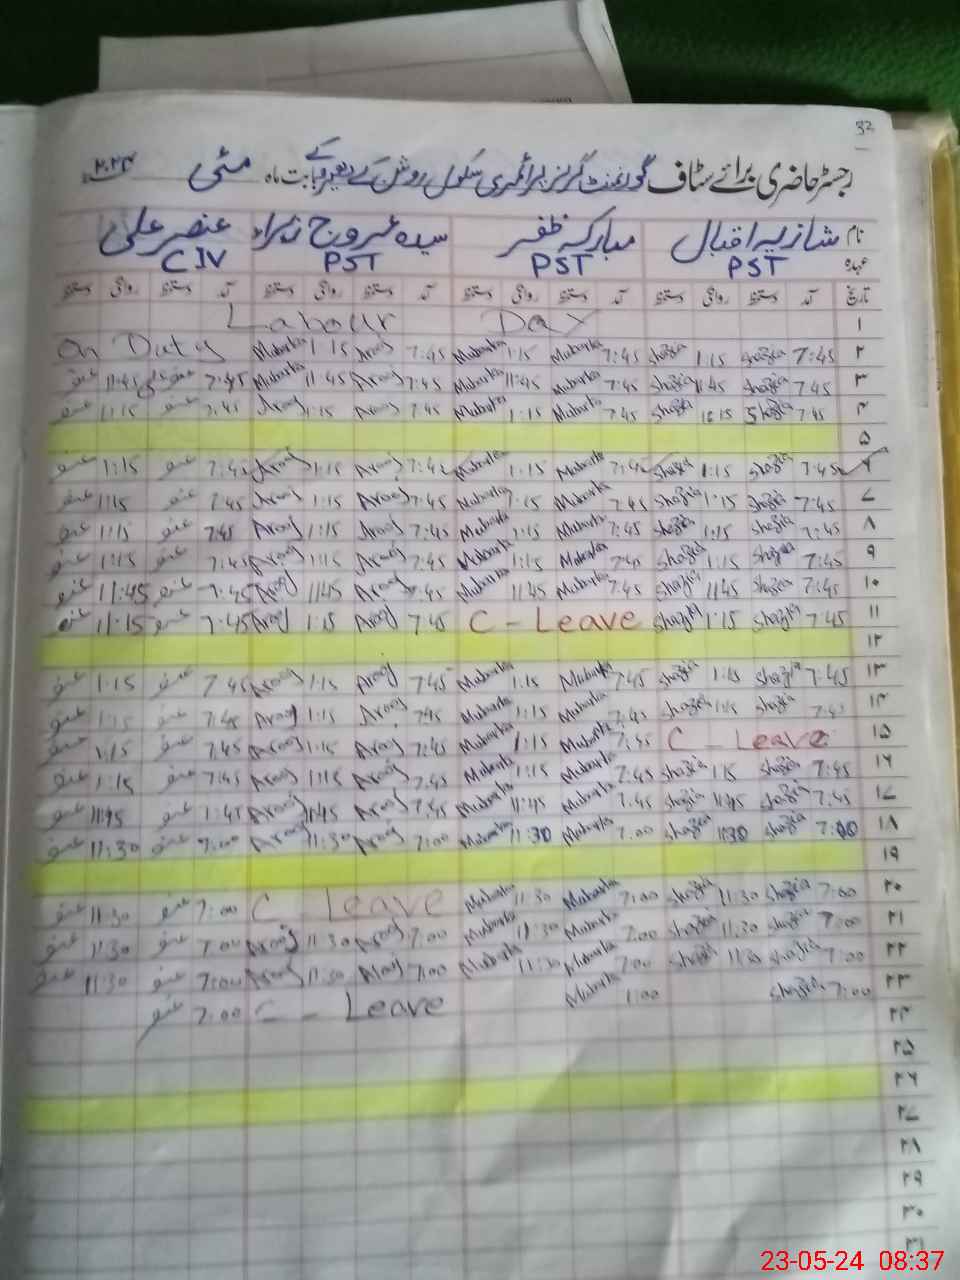 32
رجسٹر حاضری برائے سٹاف گورنمنٹ گرلز پرائمری سکول روشن کے بابت ماہ مئی ۲۰۲۴
نام شازیہ اقبال مبارکہ ظفر سیدہ عروج زہراء عنصر علی
عہدہ PST PST PST CIV
تاریخ آمد دستخط روانگی دستخط آمد دستخط روانگی دستخط آمد دستخط روانگی دستخط آمد دستخط روانگی دستخط
۱ Labour Day
۲ 7:45 Shazia 1:15 Shazia 7:45 Mubarka 1:15 Mubarka 7:45 Arooj 1:15 Mubarka On Duty
۳ 7:45 Shazia 11:45 Shazia 7:45 Mubarka 11:45 Mubarka 7:45 Arooj 11:45 Mubarka 7:45 11:45
۴ 7:45 Shazia Shazia 7:45 Mubarka 1:15 Mubarka 7:45 Arooj 1:15 Arooj 7:45 عنصر 11:15 عنصر
۵
۶ 7:45 Shazia 1:15 Shazia 7:45 Mubarka 1:15 Mubarka 7:45 Arooj 1:15 Arooj 7:45 عنصر 1:15 عنصر
۷ 7:45 Shazia 1:15 Shazia 7:45 Mubarka Mubarka 7:45 Arooj 1:15 Arooj 7:45 عنصر 1:15 عنصر
۸ 7:45 Shazia 1:15 Shazia 7:45 Mubarka 1:15 Mubarka 7:45 Arooj 1:15 Arooj 7:45 عنصر 1:15 عنصر
۹ 7:45 Shazia 1:15 Shazia 7:45 Mubarka 1:15 Mubarka 7:45 Arooj 1:15 Arooj 7:45 عنصر 1:15 عنصر
۱۰ 7:45 Shazia 11:45 Shazia 7:45 Mubarka 11:45 Mubarka 7:45 Arooj 11:45 Arooj 7:45 عنصر 11:45 عنصر
۱۱ 7:45 Shazia 1:15 Shazia C - Leave 7:45 Arooj 1:15 Arooj 7:45 عنصر 11:15 عنصر
۱۲
۱۳ 7:45 Shazia 1:15 Shazia 7:45 Mubarka 1:15 Mubarka 7:45 Arooj 1:15 Arooj 7:45 عنصر 1:15 عنصر
۱۴ 7:45 Shazia 1:15 Shazia 7:45 Mubarka 1:15 Mubarka 7:45 Arooj 1:15 Arooj 7:45 عنصر 1:15 عنصر
۱۵ C - Leave 7:45 Mubarka 1:15 Mubarka 7:45 Arooj 1:15 Arooj 7:45 عنصر 1:15 عنصر
۱۶ 7:45 Shazia 1:15 Shazia 7:45 Mubarka 1:15 Mubarka 7:45 Arooj 1:15 Arooj 7:45 عنصر 1:15 عنصر
۱۷ 7:45 Shazia 11:45 Shazia 7:45 Mubarka 11:45 Mubarka 7:45 Arooj 11:45 Arooj 1:45 عنصر 11:45 عنصر
۱۸ 7:00 Shazia 11:30 Shazia 7:00 Mubarka 11:30 Mubarka 7:00 Arooj 11:30 Arooj 7:00 عنصر 11:30 عنصر
۱۹
۲۰ 7:00 Shazia 11:30 Shazia 7:00 Mubarka 11:30 Mubarka C - Leave 7:00 عنصر 11:30 عنصر
۲۱ 7:00 Shazia 11:30 Shazia 7:00 Mubarka 11:30 Mubarka 7:00 Arooj 11:30 Arooj 7:00 عنصر 11:30 عنصر
۲۲ 7:00 Shazia 11:30 Shazia 7:00 Mubarka 11:30 Mubarka 7:00 Arooj 11:30 Arooj 7:00 عنصر 11:30 عنصر
۲۳ 7:00 Shazia 1:00 Mubarka C - Leave 7:00 عنصر
۲۴
۲۵
۲۶
۲۷
۲۸
۲۹
۳۰
۳۱
23-05-24 08:37